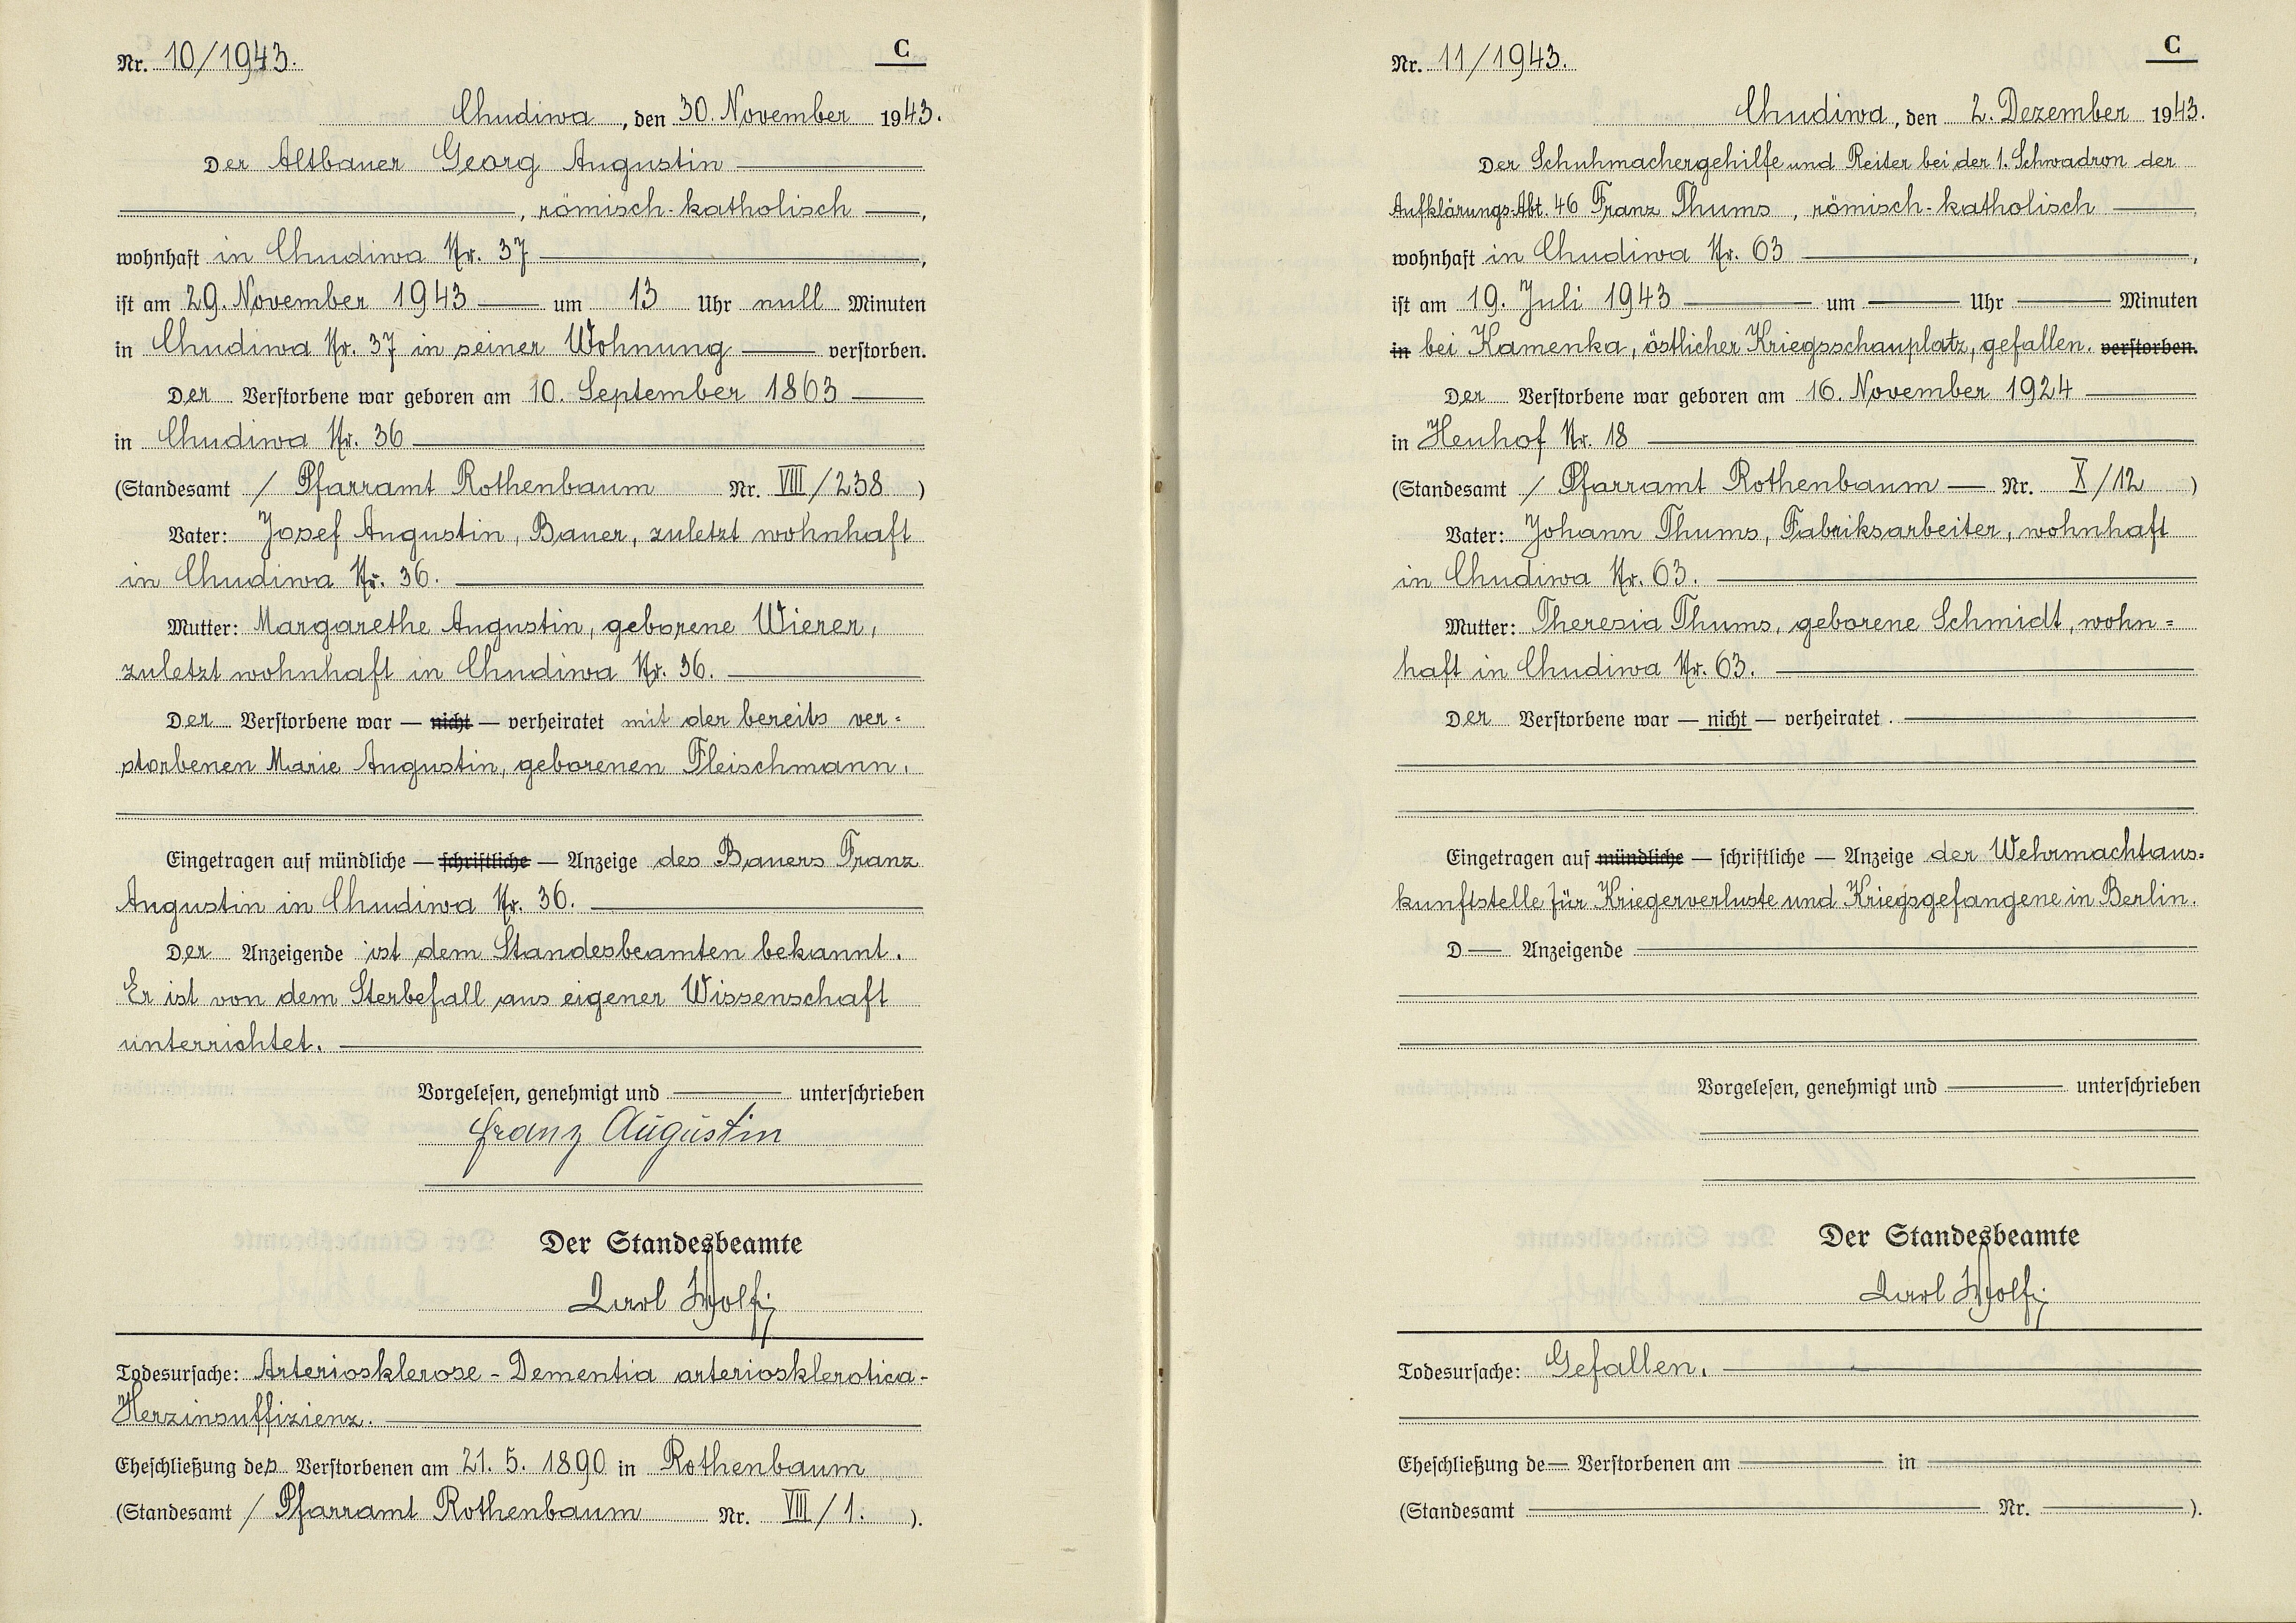 Nr. 10/1943.
C
Chudiwa, den 30. November 1943.
Der Altbauer Georg Augustin
, römisch-katholisch ,
wohnhaft in Chudiwa Nr. 37 ,
ist am 29. November 1943 um 13 Uhr null Minuten
in Chudiwa Nr. 37 in seiner Wohnung verstorben.
Der Verstorbene war geboren am 10. September 1863
in Chudiwa Nr. 36
(Standesamt / Pfarramt Rothenbaum Nr. VIII/238 )
Vater: Josef Augustin, Bauer, zuletzt wohnhaft
in Chudiwa Nr. 36.
Mutter: Margarethe Augustin, geborene Wierer,
zuletzt wohnhaft in Chudiwa Nr. 36.
Der Verstorbene war — nicht — verheiratet mit der bereits ver=
storbenen Marie Augustin, geborenen Fleischmann.
Eingetragen auf mündliche — schriftliche — Anzeige des Bauers Franz
Augustin in Chudiwa Nr. 36.
Der Anzeigende ist dem Standesbeamten bekannt.
Er ist von dem Sterbefall aus eigener Wissenschaft
unterrichtet.
Vorgelesen, genehmigt und unterschrieben
Franz Augustin
Der Standesbeamte
Karl Wolf
Todesursache: Arteriosklerose - Dementia arteriosklerotica -
Herzinsuffizienz.
Eheschließung des Verstorbenen am 21. 5. 1890 in Rothenbaum
(Standesamt / Pfarramt Rothenbaum Nr. VIII/1. ).
Nr. 11/1943.
C
Chudiwa, den 2. Dezember 1943.
Der Schuhmachergehilfe und Reiter bei der 1. Schwadron der
Aufklärungs-Abt. 46 Franz Thums, römisch-katholisch ,
wohnhaft in Chudiwa Nr. 63 ,
ist am 19. Juli 1943 um — Uhr — Minuten
in bei Kamenka, östlicher Kriegsschauplatz, gefallen. verstorben.
Der Verstorbene war geboren am 16. November 1924
in Heuhof Nr. 18
(Standesamt / Pfarramt Rothenbaum — Nr. X/12 )
Vater: Johann Thums, Fabriksarbeiter, wohnhaft
in Chudiwa Nr. 63.
Mutter: Theresia Thums, geborene Schmidt, wohn=
haft in Chudiwa Nr. 63.
Der Verstorbene war — nicht — verheiratet.
Eingetragen auf mündliche — schriftliche — Anzeige der Wehrmachtaus=
kunftstelle für Kriegerverluste und Kriegsgefangene in Berlin.
D— Anzeigende
Vorgelesen, genehmigt und unterschrieben
Der Standesbeamte
Karl Wolf
Todesursache: Gefallen.
Eheschließung de— Verstorbenen am — in —
(Standesamt — Nr. — ).